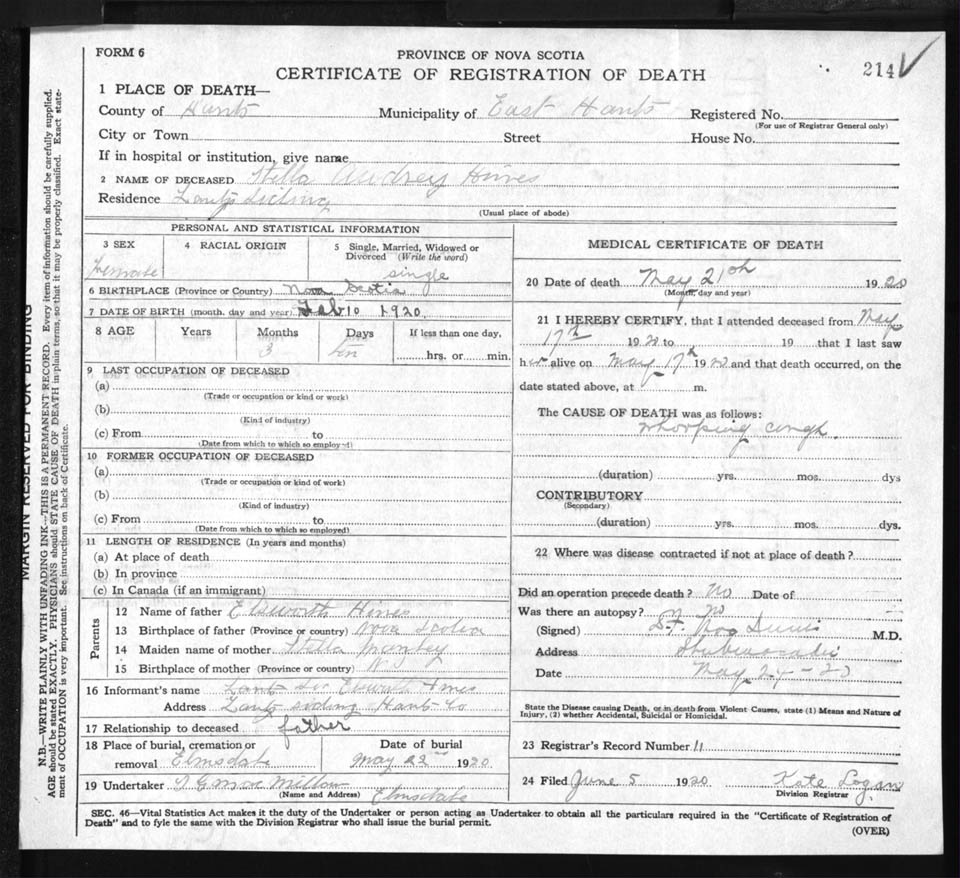 FORM 6
PROVINCE OF NOVA SCOTIA
CERTIFICATE OF REGISTRATION OF DEATH
214 ✓
1 PLACE OF DEATH—
County of Hants Municipality of East Hants Registered No.
(For use of Registrar General only)
City or Town Street House No.
If in hospital or institution, give name
2 NAME OF DECEASED Stella Audrey Hines
Residence Lantz Siding
(Usual place of abode)
PERSONAL AND STATISTICAL INFORMATION
3 SEX 4 RACIAL ORIGIN 5 Single, Married, Widowed or
Divorced (Write the word)
Female single
6 BIRTHPLACE (Province or Country) Nova Scotia
7 DATE OF BIRTH (month. day and year) Feb 10 1920
8 AGE Years Months Days If less than one day,
3 hrs. or min.
9 LAST OCCUPATION OF DECEASED
(a)
(Trade or occupation or kind or work)
(b)
(Kind of industry)
(c) From to
(Date from which to which so employed)
10 FORMER OCCUPATION OF DECEASED
(a)
(Trade or occupation or kind of work)
(b)
(Kind of industry)
(c) From to
(Date from which to which so employed)
11 LENGTH OF RESIDENCE (In years and months)
(a) At place of death
(b) In province
(c) In Canada (if an immigrant)
Parents
12 Name of father Elsworth Hines
13 Birthplace of father (Province or country) Nova Scotia
14 Maiden name of mother Stella
15 Birthplace of mother (Province or country) N.S.
16 Informant's name Elsworth Hines
Address Lantz siding Hants Co
17 Relationship to deceased father
18 Place of burial, cremation or Date of burial
removal Elmsdale May 22nd 1920
19 Undertaker
(Name and Address) Elmsdale
MEDICAL CERTIFICATE OF DEATH
20 Date of death May 21th 1920
(Month, day and year)
21 I HEREBY CERTIFY, that I attended deceased from May
17th 1920 to 19 that I last saw
her alive on May 17th 1920 and that death occurred, on the
date stated above, at m.
The CAUSE OF DEATH was as follows:
Whooping cough.
(duration) yrs. mos. dys
CONTRIBUTORY
(Secondary)
(duration) yrs. mos. dys.
22 Where was disease contracted if not at place of death?
Did an operation precede death? No Date of
Was there an autopsy? No
(Signed) M.D.
Address Shubenacadie
Date May 24 - 20
State the Disease causing Death, or in death from Violent Causes, state (1) Means and Nature of
Injury, (2) whether Accidental, Suicidal or Homicidal.
23 Registrar's Record Number 11
24 Filed June 5 1920 Kate Logan
Division Registrar
SEC. 46—Vital Statistics Act makes it the duty of the Undertaker or person acting as Undertaker to obtain all the particulars required in the "Certificate of Registration of
Death" and to fyle the same with the Division Registrar who shall issue the burial permit.
(OVER)
MARGIN RESERVED FOR BINDING
N.B.—WRITE PLAINLY WITH UNFADING INK—THIS IS A PERMANENT RECORD. Every item of information should be carefully supplied.
AGE should be stated EXACTLY. PHYSICIANS should STATE CAUSE OF DEATH in plain terms, so that it may be properly classified. Exact state-
ment of OCCUPATION is very important. See instructions on back of Certificate.